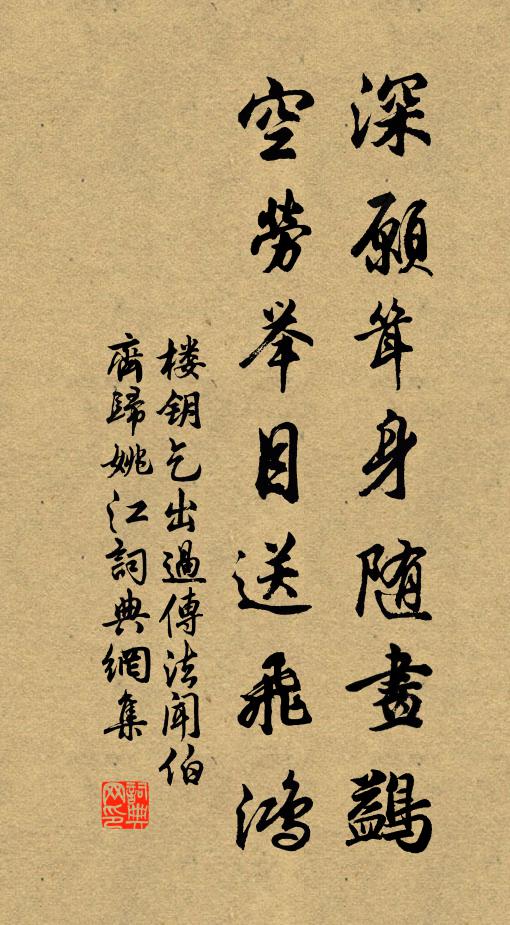 深願聳身随畫鷁
空勞举目送飛鴻
楼钥乞出過傳法聞伯
齊歸姚江詞典網集
詞典网印